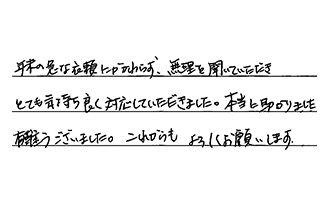 年末の急な依頼にかかわらず、無理を聞いていただき
とても気持ち良く対応していただきました。本当に助かりました
有難うございました。これからも よろしくお願いします。